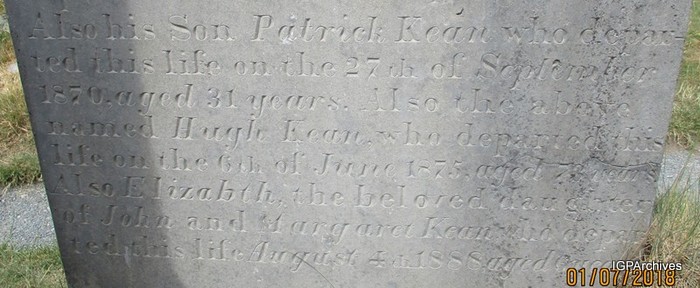 Also his Son Patrick Kean who depar-
ted this life on the 27th of September
1870, aged 31 years. Also the above
named Hugh Kean, who departed this
life on the 6th of June 1875, aged years
Also Elizabth, the beloved daughter
of John and Margaret Kean who depar
ted this life August 4th 1888 aged
IGPArchives
01/07/2018